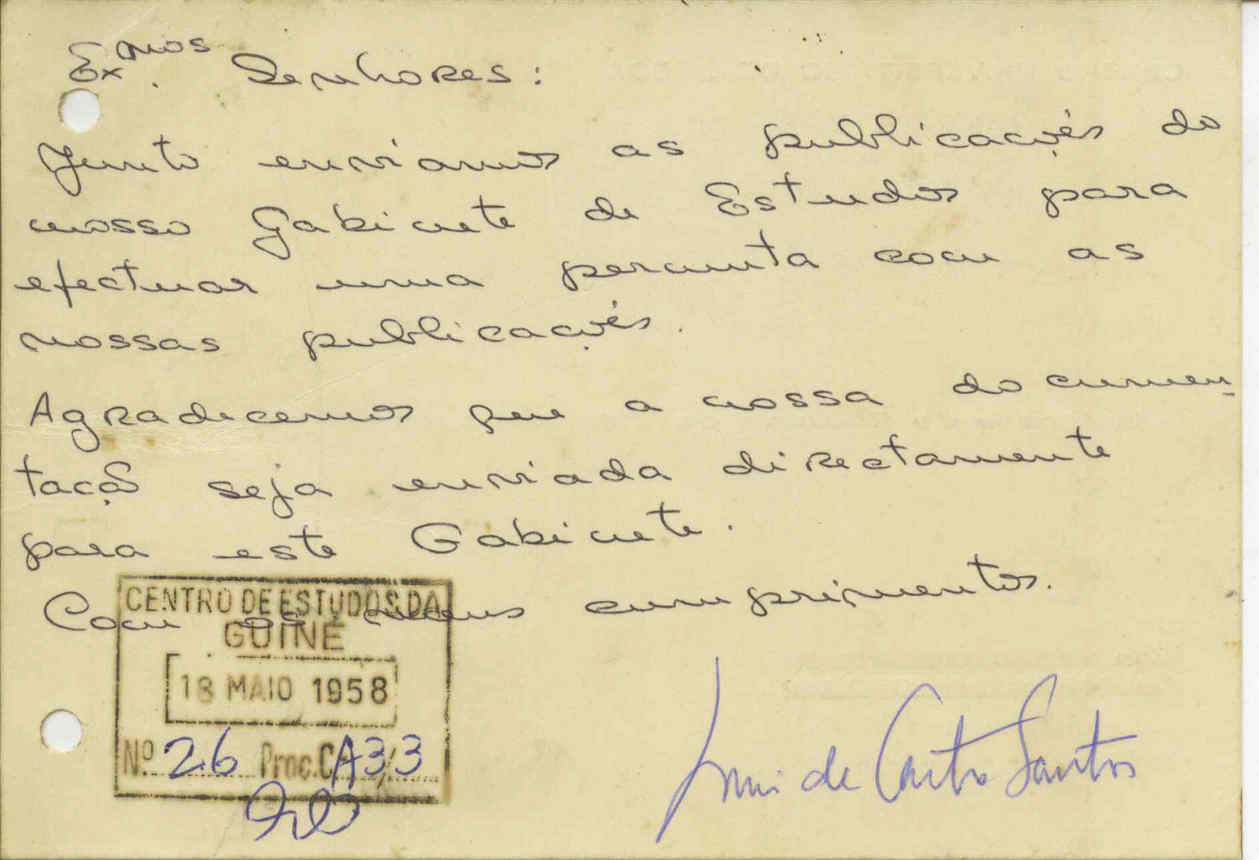 Exmos. Senhores:
Junto enviamos as publicações do
nosso Gabinete de Estudos para
efectuar uma permuta com as
vossas publicações.
Agradecemos que a vossa documen-
tação seja enviada directamente
para este Gabinete.
Com os meus cumprimentos.
CENTRO DE ESTUDOS DA
GUINÉ
18 MAIO 1958
Nº 26 Proc. CA3/3
de Castro Santos